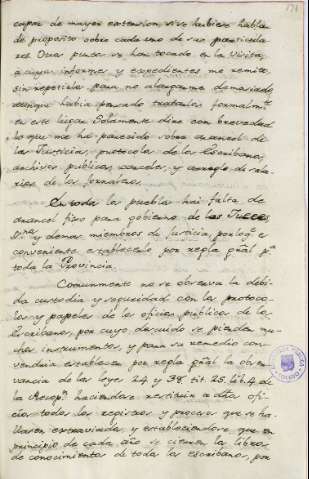 capaz de mayor extension si se hubiese habla
de proposito sobre cada uno de sus particula
res. Otros puntos se han tocado en la Visita,
a cuyos informes y expedientes me remito
sin repetirlos para no alargarme demasiado,
aunque habia pensado tratarlos formalmte
en este lugar. Solamente dire con brevedad
lo que me ha parecido sobre arancel de
las Justicias, protocolos de los Escribanos,
archivos publicos, carceles, y arreglo de sala-
rios de los jornaleros.
En todos los pueblos hai falta de
arancel fixo para gobierno de los Jueces,
y demas miembros de Justicia, por lo qe es
conveniente establecerlo por regla gñal pa
toda la Provincia.
Comunmente no se observa la debi
da custodia y seguridad con los protoco-
los y papeles de los oficios publicos de los
Escribanos, por cuyo descuido se pierden mu
chos instrumentos, y para su remedio con
vendria establecer por regla gñal la obser
vancia de las leyes 24 y 38. tit. 25. lib. 4. de
la Recopn. haciendose restituir a dhos ofi
cios todos los registros y procesos que se ha
llasen extraviados y estableciendose que en
principio de cada año se cierren los libros
de conocimientos de todos los escribanos, por